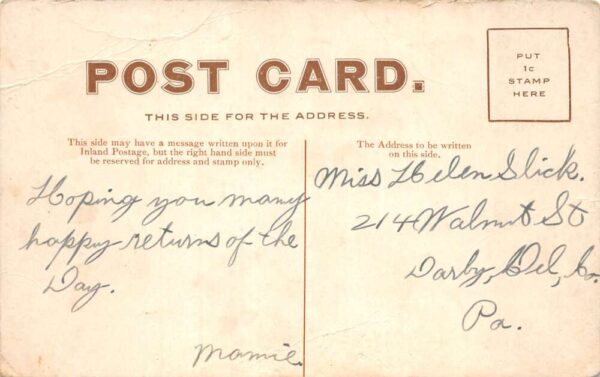 POST CARD.
PUT
1c
STAMP
HERE
THIS SIDE FOR THE ADDRESS.
This side may have a message written upon it for
Inland Postage, but the right hand side must
be reserved for address and stamp only.
The Address to be written
on this side.
Hoping you many
happy returns of the
Day.
Mamie.
Miss Helen Slick.
214 Walnut St
Darby, Del, Co.
Pa.